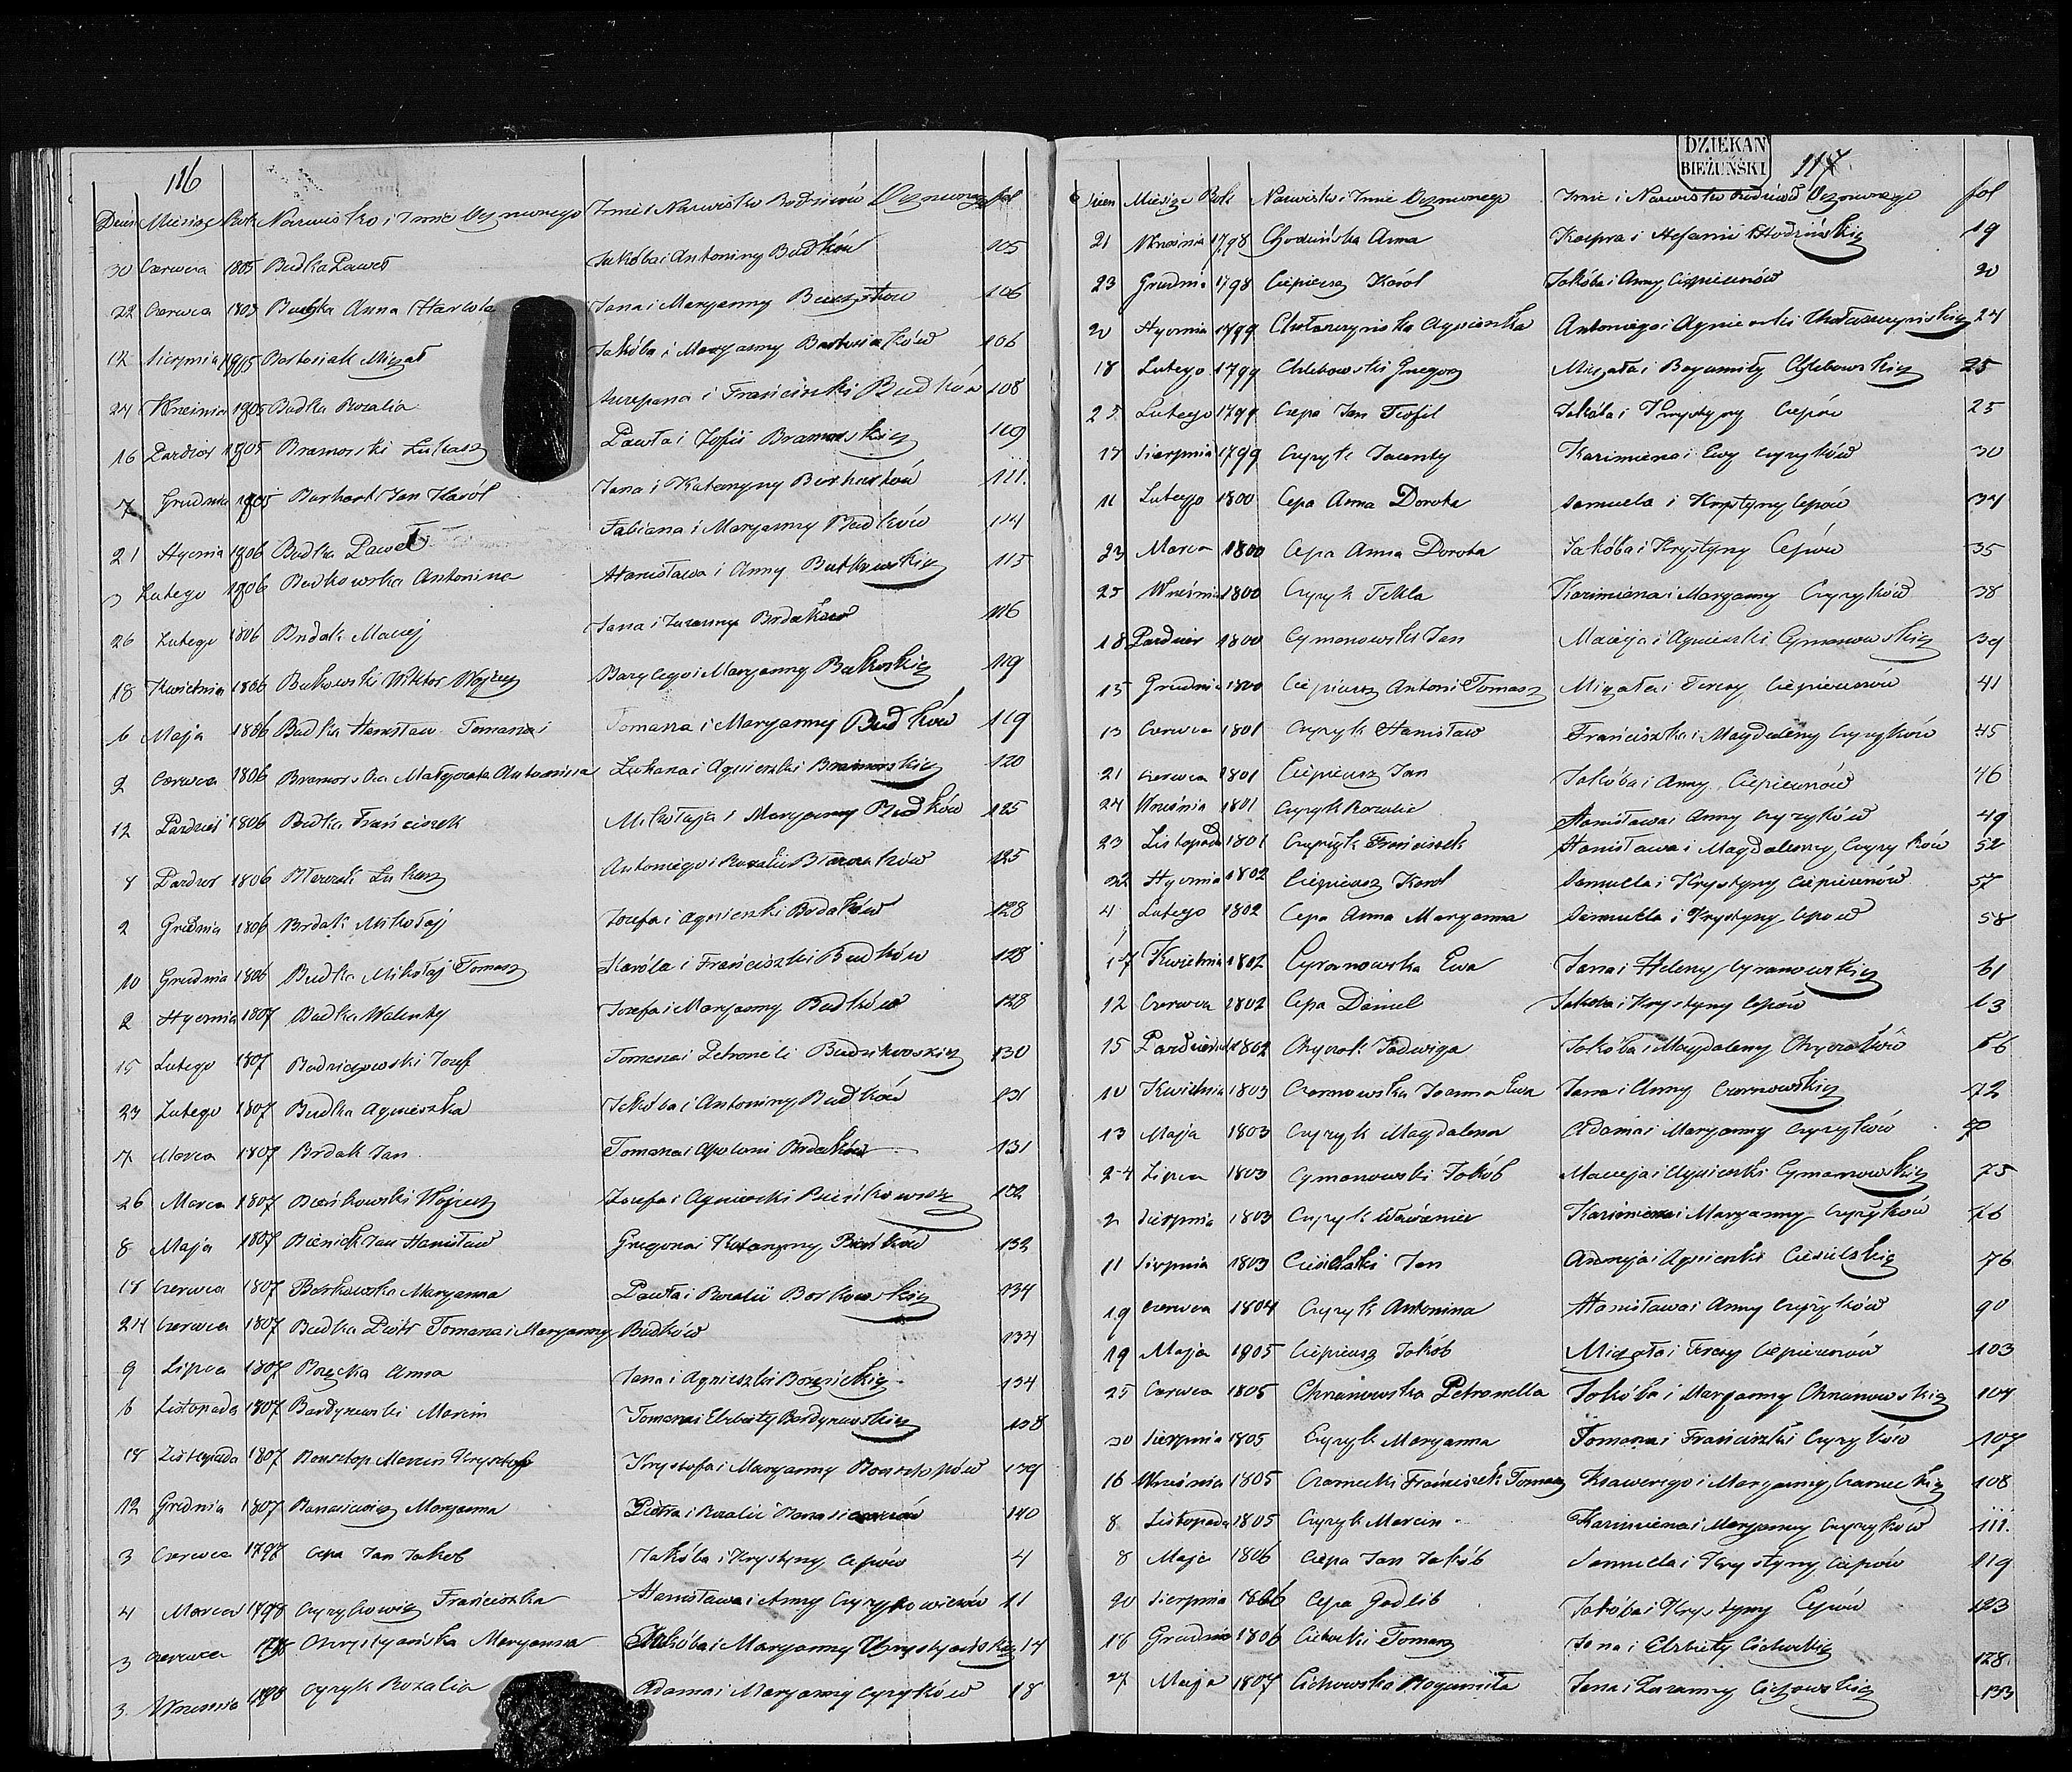 116
Dzień Miesiąc Rok Nazwisko i Imie Uznanego Imie i Nazwisko Rodziców Uznanego fol
30 Czerwca 1805 Budka Paweł Jakóba i Antoniny Budków 105
22 Czerwca 1805 Anna Karola Jana i Maryanny 106
12 Sierpnia 1805 Bartosiak Michał Jakóba i Maryanny Bartosiaków 106
24 Wrzesnia 1805 Budka Rozalia Szczepana i Franciszki Budków 108
16 Pazdzier 1805 Bramorski Łukasz Pawła i Zofii Bramorskich 109
7 Grudnia 1805 Borhart Jan Karól Jana i Katarzyny Borhartów 111.
21 Stycznia 1806 Budka Paweł Fabiana i Maryanny Budków 114
Lutego 1806 Budkowska Antonina Stanisława i Anny Butkowskich 115
26 Lutego 1806 Brdak Maciej Jana i Zuzanny Brdaków 116
18 Kwietnia 1806 Bukowski Wiktor Maryanny 119
6 Maja 1806 Budka Stanisław Tomasza i Tomasza i Maryanny Budków 119
2 Czerwca 1806 Bramorska Małgorzata Antonina Łukasza i Agnieszki Bramorskich 120
12 Pazdzier 1806 Budka Franciszek Mikołaja i Maryanny Budków 125
8 Pazdzier 1806 Łukasz Antoniego i Rozalii 125
2 Grudnia 1806 Brdak Mikołaj Jozefa i Agnieszki Brdaków 128
10 Grudnia 1806 Budka Mikołaj Tomasz Karóla i Franciszki Budków 128
2 Stycznia 1807 Budka Walenty Jozefa i Maryanny Budków 128
15 Lutego 1807 Jozef Tomasza i Petroneli 130
23 Lutego 1807 Budka Agnieszka Jakóba i Antoniny Budków 131
7 Marca 1807 Brdak Jan Tomasza i Apolonii Brdaków 131
26 Marca 1807 Bieńkowski Wojciech Jozefa i Agnieszki 132
8 Maja 1807 Bieniek Jan Stanisław Grzegorza i Katarzyny Bieńków 132
18 Czerwca 1807 Borkowska Maryanna Pawła i Rozalii Borkowskich 134
24 Czerwca 1807 Budka Piotr Tomasza i Maryanny Budków 134
9 Lipca 1807 Anna Jana i Agnieszki 134
6 Listopada 1807 Bardyzewski Marcin Tomasza i Elzbiety 138
18 Listopada 1807 Marcin Krysztof Krysztofa i Maryanny 139
12 Grudnia 1807 Banasiewicz Maryanna Piotra i Rozalii 140
3 Czerwca 1797 Cepa Jan Jakob Jakóba i Krystyny Cepów 4
4 Marca 1798 Czyzykowicz Franciszka Stanisława i Anny Czyzykowiczów 11
3 Czerwca 1798 Chrystyańska Maryanna Jakóba i Maryanny Chrystyańskich 14
3 Wrzesnia 1798 Czyzyk Rozalia Adama i Maryanny Czyzyków 18
DZIEKAN
BIEŻUŃSKI
117
Dzien Miesiąc Rok Nazwisko i Imie Uznanego Imie i Nazwisko Rodziców Uznanego fol
21 Wrzesnia 1798 Chodzińska Anna Kacpra i Stefanii Chodzińskich 19
23 Grudnia 1798 Ciepierz Karól Jakóba i Anny 20
20 Stycznia 1799 Agnieszka Antoniego i Agnieszki 24
18 Lutego 1799 Chlebowski Grzegorz Michała i Bogumiły Chlebowskich 25
25 Lutego 1799 Cepa Jan Teofil Jakóba i Krystyny Cepów 25
17 Sierpnia 1799 Czyzyk Jacenty Kazimierza i Ewy Czyzyków 30
11 Lutego 1800 Cepa Anna Dorota Samuela i Krystyny Cepów 34
23 Marca 1800 Cepa Anna Dorota Jakóba i Krystyny Cepów 35
25 Wrzesnia 1800 Czyzyk Tekla Kazimierza i Maryanny Czyzyków 38
18 Pazdzier 1800 Cymanowski Jan Macieja i Agnieszki Cymanowskich 39
15 Grudnia 1800 Antoni Tomasz Michała i Teresy 41
13 Czerwca 1801 Czyzyk Stanisław Franciszka i Magdaleny Czyzyków 45
21 Czerwca 1801 Ciepierz Jan Jakóba i Anny 46
24 Wrzesnia 1801 Czyzyk Rozalia Stanisława i Anny Czyzyków 49
23 Listopada 1801 Czyzyk Franciszek Stanisława i Magdaleny Czyzyków 52
22 Stycznia 1802 Karol Samuela i Krystyny 57
4 Lutego 1802 Cepa Anna Maryanna Samuela i Krystyny Cepow 58
17 Kwietnia 1802 Cyranowska Ewa Jana i Heleny Cyranowskich 61
12 Czerwca 1802 Cepa Daniel Jakóba i Krystyny Cepów 63
15 Pazdziernik 1802 Jadwiga Jakóba i Magdaleny 66
10 Kwietnia 1803 Czarnowska Joanna Ewa Jana i Anny Czarnowskich 72
13 Maja 1803 Czyzyk Magdalena Adama i Maryanny Czyzyków
24 Lipca 1803 Cymanowski Jakób Macieja i Agnieszki Cymanowskich 75
2 Sierpnia 1803 Czyzyk Wawrzeniec Kazimierza i Maryanny Czyzyków 76
11 Sierpnia 1803 Ciesielski Jan Andrzeja i Agnieszki Ciesielskich 76
19 Czerwca 1804 Czyzyk Antonina Stanisława i Anny Czyzyków 90
19 Maja 1805 Ciepierz Jakób Michała i Teresy 103
25 Czerwca 1805 Chrzanowska Petronella Jakóba i Maryanny Chrzanowskich 104
30 Sierpnia 1805 Czyzyk Maryanna Tomasza i Franciszki Czyzyków 107
16 Wrzesnia 1805 Czarnecki Franciszek Tomasz Ksawerego i Maryanny Czarneckich 108
8 Listopada 1805 Czyzyk Marcin Kazimierza i Maryanny Czyzyków 111.
8 Maja 1806 Ciepa Jan Jakób Samuela i Krystyny Ciepów 119
20 Sierpnia 1806 Cepa Godlib Jakóba i Krystyny Cepów 123
18 Grudnia 1806 Cichocki Tomasz Jana i Elzbiety Cichockich 128.
27 Maja 1807 Cichowska Bogumiła Jana i Zuzanny Cichowskich 133